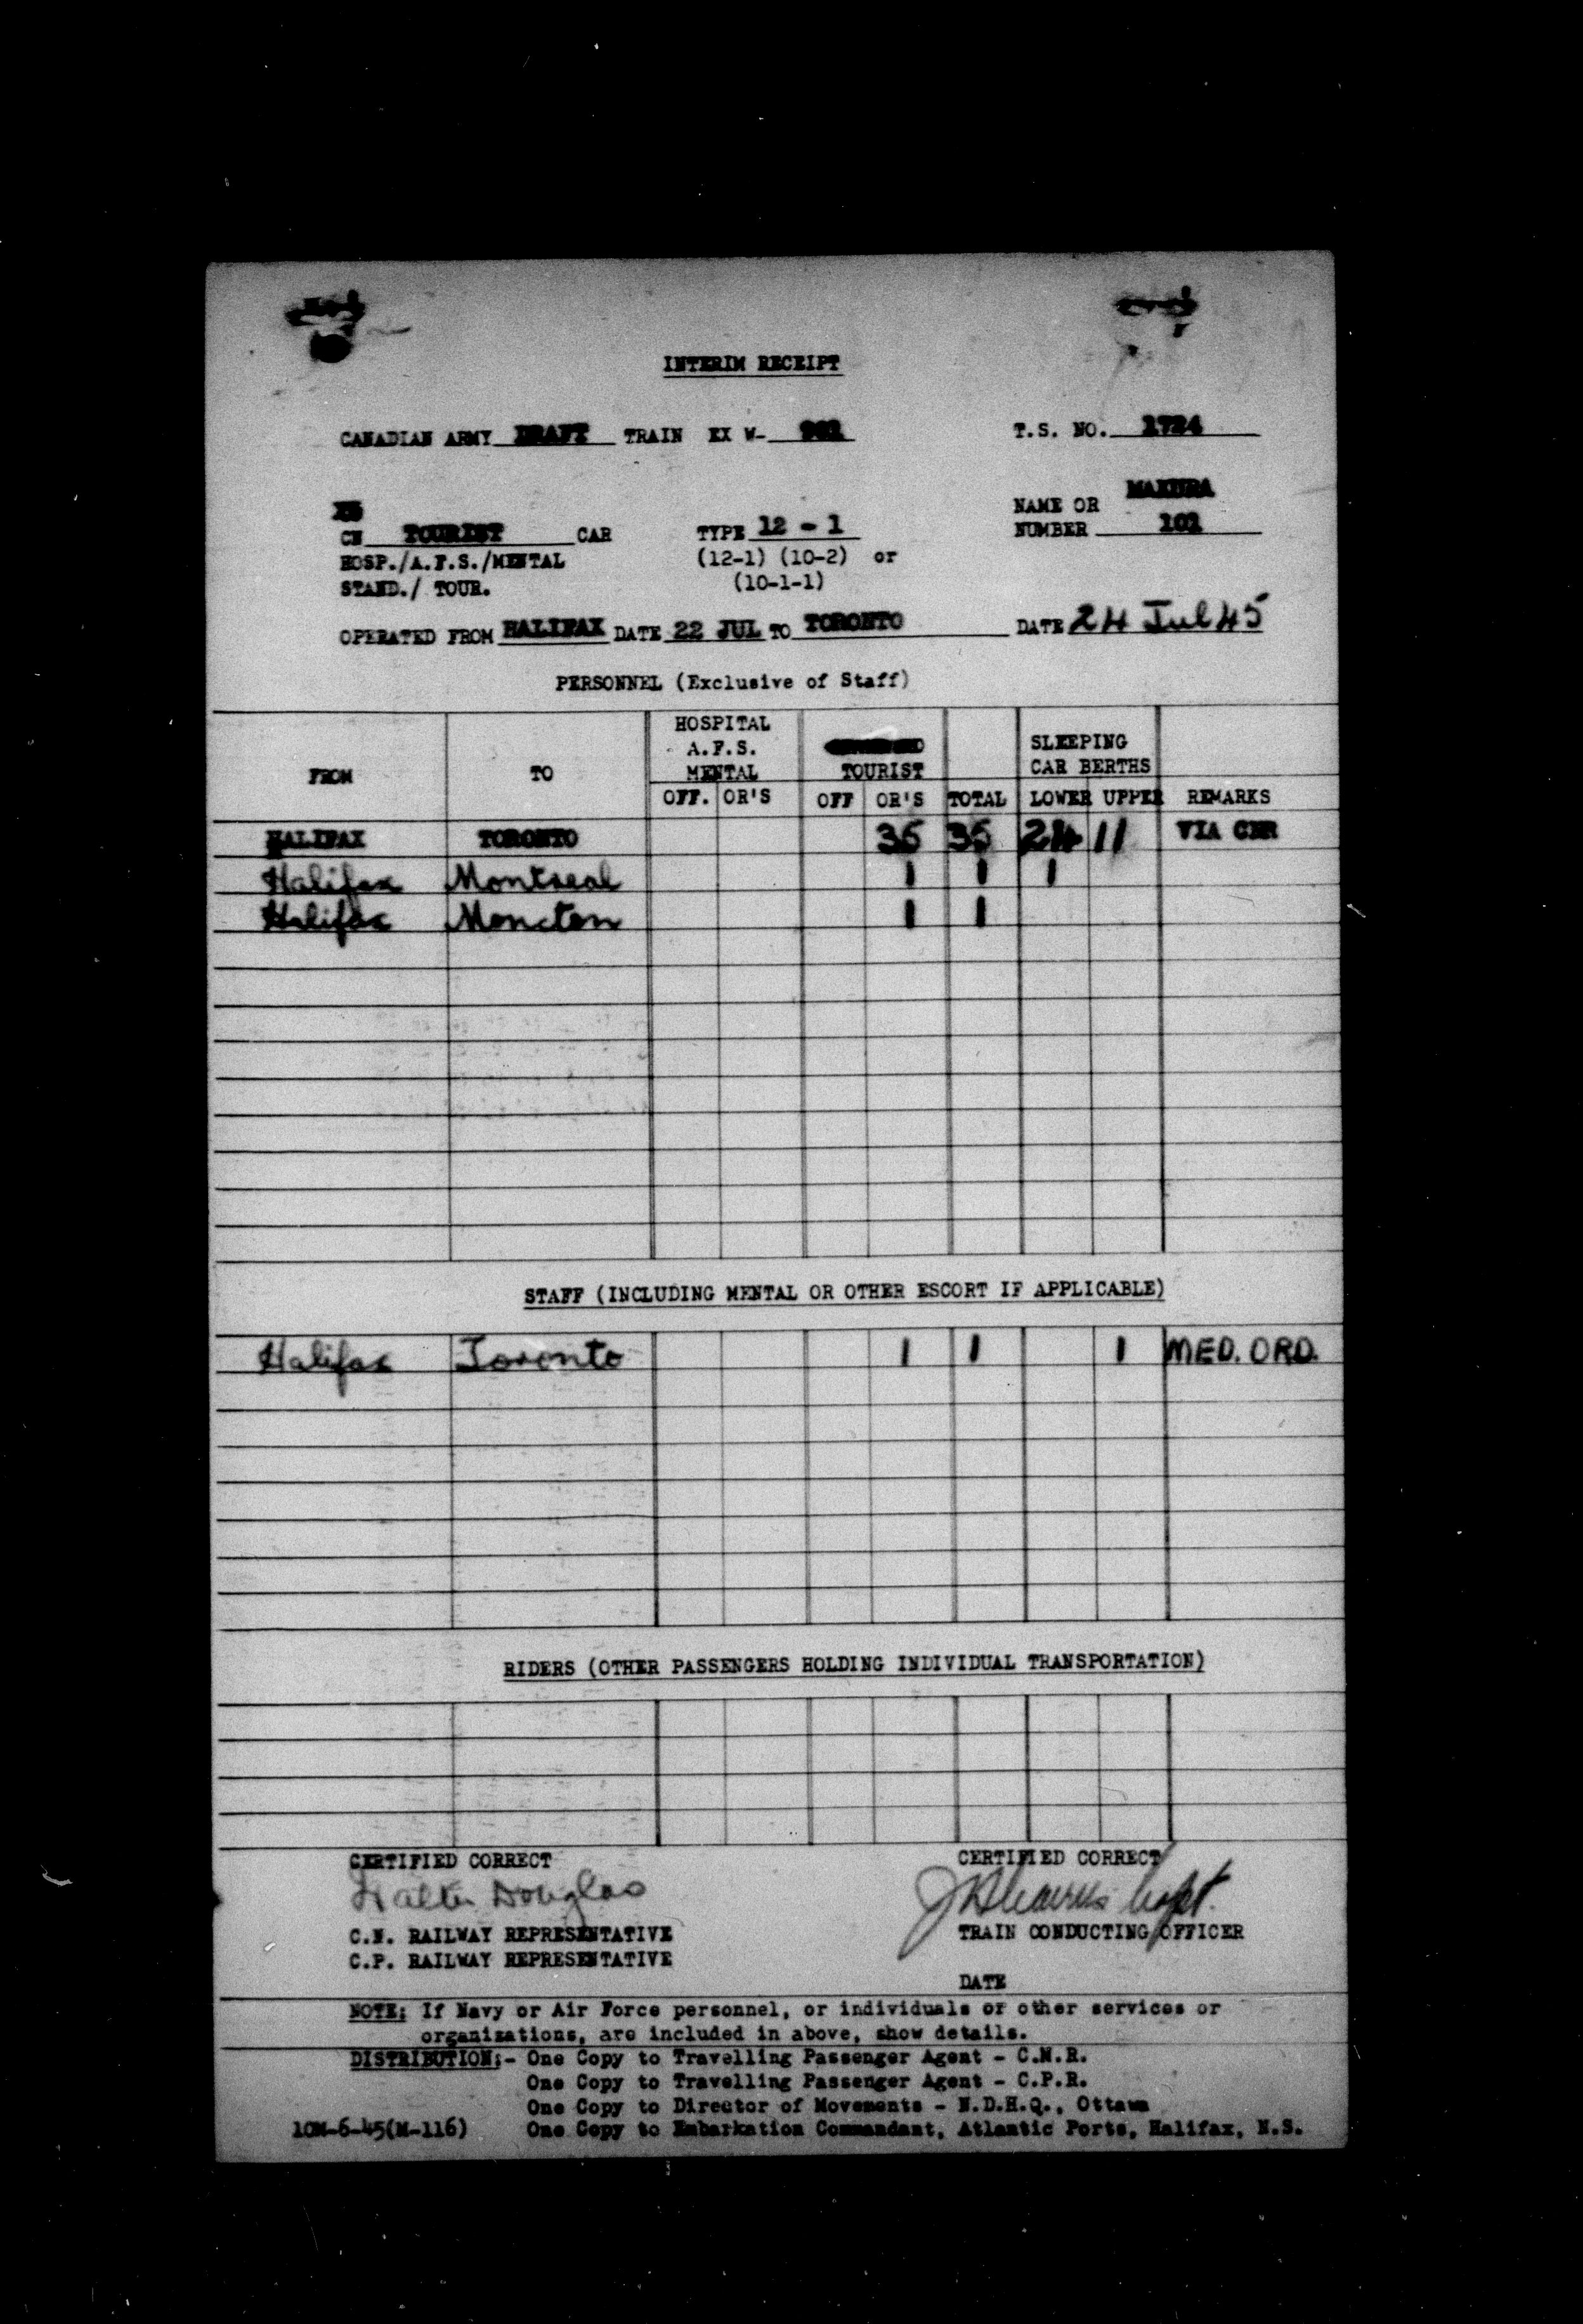 INTERIM RECEIPT
CANADIAN ARMY DRAFT TRAIN EX W- T.S. NO. 1724
NAME OR
CN TOURIST CAR TYPE 12 - 1 NUMBER 101
HOSP./A.F.S./MENTAL (12-1) (10-2) or
STAND./ TOUR. (10-1-1)
OPERATED FROM HALIFAX DATE 22 JUL TO TORONTO DATE 24 Jul 45
PERSONNEL (Exclusive of Staff)
HOSPITAL
A.F.S. SLEEPING
FROM TO MENTAL TOURIST CAR BERTHS
OFF. OR'S OFF OR'S TOTAL LOWER UPPER REMARKS
HALIFAX TORONTO 35 35 24 11 VIA CNR
Halifax Montreal 1 1 1
Halifax Moncton 1 1
STAFF (INCLUDING MENTAL OR OTHER ESCORT IF APPLICABLE)
Halifax Toronto 1 1 1 MED. ORD.
RIDERS (OTHER PASSENGERS HOLDING INDIVIDUAL TRANSPORTATION)
CERTIFIED CORRECT CERTIFIED CORRECT
Douglas Capt.
C.N. RAILWAY REPRESENTATIVE TRAIN CONDUCTING OFFICER
C.P. RAILWAY REPRESENTATIVE
DATE
NOTE: If Navy or Air Force personnel, or individuals of other services or
organizations, are included in above, show details.
DISTRIBUTION:- One Copy to Travelling Passenger Agent - C.N.R.
One Copy to Travelling Passenger Agent - C.P.R.
One Copy to Director of Movements - N.D.H.Q., Ottawa
10M-6-45(M-116) One Copy to Embarkation Commandant, Atlantic Ports, Halifax, N.S.